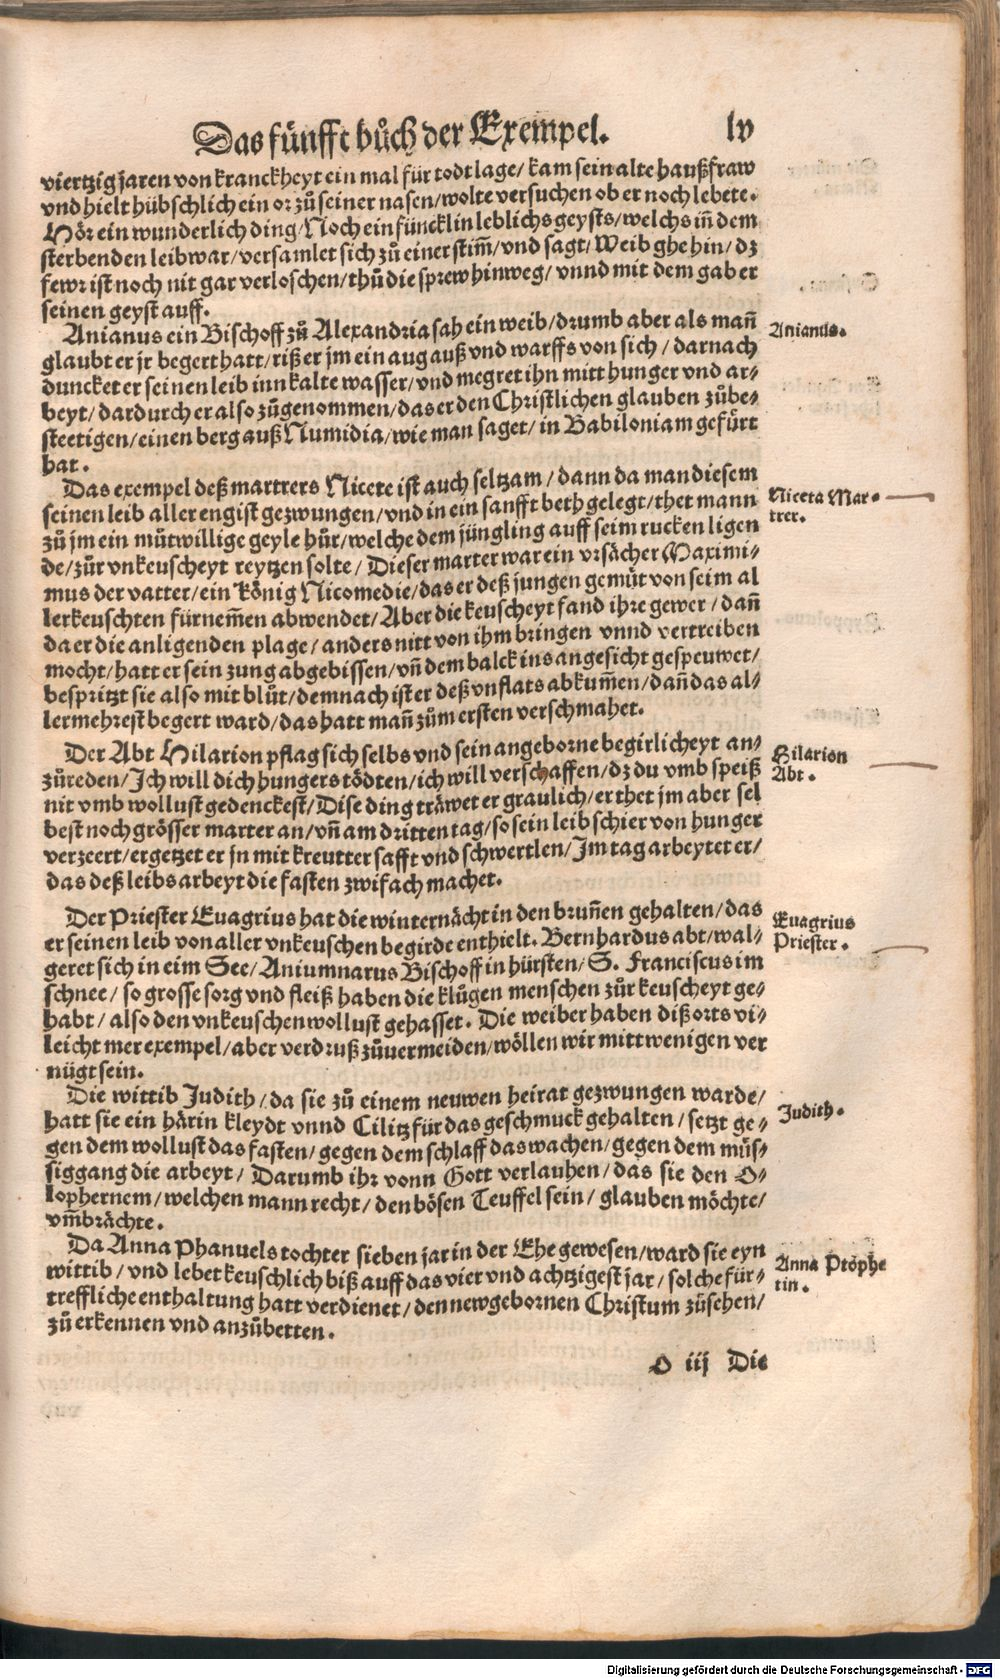 Das fünfft bůch der Exempel. lv
viertzig jaren von kranckheyt ein mal für todt lage/ kam sein alte haußfraw
vnd hielt hübschlich ein or zů seiner nasen/ wolte versuchen ob er noch lebete.
Hör ein wunderlich ding/ Noch ein füncklin leblichs geysts/ welchs iñ dem
sterbenden leib war/ versamlet sich zů einer stim̃/ vnd sagt/ Weib ghe hin/ dz
fewr ist noch nit gar verloschen/ thů die sprew hinweg/ vnnd mit dem gab er
seinen geyst auff.
Anianus ein Bischoff zů Alexandria sah ein weib/ drumb aber als mañ
Anianus.
glaubt er jr begert hatt/ riß er jm ein aug auß vnd warffs von sich/ darnach
duncket er seinen leib inn kalte wasser/ vnd megret ihn mitt hunger vnd ar⸗
beyt/ dardurch er also zůgenommen/ das er den Christlichen glauben zůbe⸗
steetigen/ einen berg auß Numidia/ wie man saget/ in Babiloniam gefürt
hat.
Das exempel deß martrers Nicete ist auch seltzam/ dann da man diesem
Niceta Mar⸗
trer.
seinen leib aller engist gezwungen/ vnd in ein sanfft beth gelegt/ thet mann
zů jm ein můtwillige geyle hůr/ welche dem jüngling auff seim rucken ligen
de/ zůr vnkeuscheyt reytzen solte/ Dieser marter war ein vrsächer Maximi⸗
mus der vatter/ ein König Nicomedie/ das er deß jungen gemüt von seim al
lerkeuschten fürnem̃en abwendet/ Aber die keuscheyt fand ihre gewer/ dañ
da er die anligenden plage/ anders nitt von ihm bringen vnnd vertreiben
mocht/ hatt er sein zung abgebissen/ vñ dem balck ins angesicht gespeuwet/
bespritzt sie also mit blůt/ demnach ist er deß vnflats abkum̃en/ dañ das al⸗
lermehrest begert ward/ das hatt mañ zům ersten verschmahet.
Der Abt Hilarion pflag sich selbs vnd sein angeborne begirlicheyt an⸗
Hilarion
Abt.
zůreden/ Ich will dich hungers tödten/ ich will verschaffen/ dz du vmb speiß
nit vmb wollust gedenckest/ Dise ding träwet er graulich/ er thet jm aber sel
best noch grösser marter an/ vñ am dritten tag/ so sein leib schier von hunger
verzeert/ ergetzet er jn mit kreutter safft vnd schwertlen/ Im tag arbeytet er/
das deß leibs arbeyt die fasten zwifach machet.
Der Priester Euagrius hat die winternächt in den bruñen gehalten/ das
Euagrius
Priester.
er seinen leib von aller vnkeuschen begirde enthielt. Bernhardus abt/ wal⸗
geret sich in eim See/ Aniumnarus Bischoff in hürsten/ S. Franciscus im
schnee/ so grosse sorg vnd fleiß haben die klůgen menschen zůr keuscheyt ge⸗
habt/ also den vnkeuschen wollust gehasset. Die weiber haben diß orts vi⸗
leicht mer exempel/ aber verdruß zůuermeiden/ wöllen wir mitt wenigen ver
nügt sein.
Die wittib Judith/ da sie zů einem neuwen heirat gezwungen warde/
Judith.
hatt sie ein härin kleydt vnnd Cilitz für das geschmuck gehalten/ setzt ge⸗
gen dem wollust das fasten/ gegen dem schlaff das wachen/ gegen dem müs⸗
siggang die arbeyt/ Darumb ihr vonn Gott verlauhen/ das sie den O⸗
lophernem/ welchen mann recht/ den bösen Teuffel sein/ glauben möchte/
vm̃brächte.
Da Anna Phanuels tochter sieben jar in der Ehe gewesen/ ward sie eyn
Anna Prophe
tin.
wittib/ vnd lebet keuschlich biß auff das vier vnd achtzigest jar/ solche für⸗
treffliche enthaltung hatt verdienet/ den newgebornen Christum zůsehen/
zů erkennen vnd anzůbetten.
O iij Die
Digitalisierung gefördert durch die Deutsche Forschungsgemeinschaft - DFG